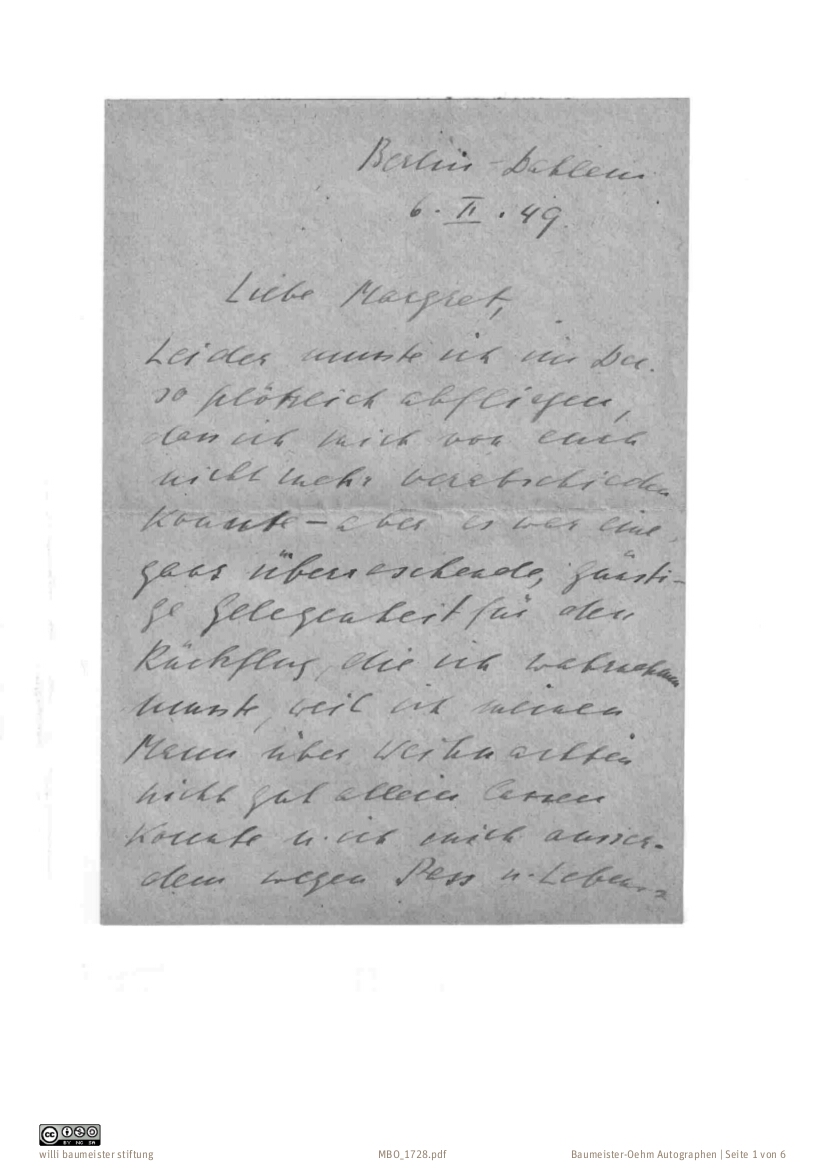 Berlin-Dahlem
6. II. 49
Liebe Margret,
Leider musste ich im Dez.
so plötzlich abfliegen,
dass ich mich von euch
nicht mehr verabschieden
konnte – aber es war eine
ganz überraschende, günsti-
ge Gelegenheit für den
Rückflug, die ich wahrnehmen
musste, weil ich meinen
Mann über Weihnachten
nicht gut allein lassen
konnte u. ich mich ausser-
dem wegen Pass u. Lebens-
CC BY NC SA
willi baumeister stiftung
MBO_1728.pdf
Baumeister-Oehm Autographen | Seite 1 von 6